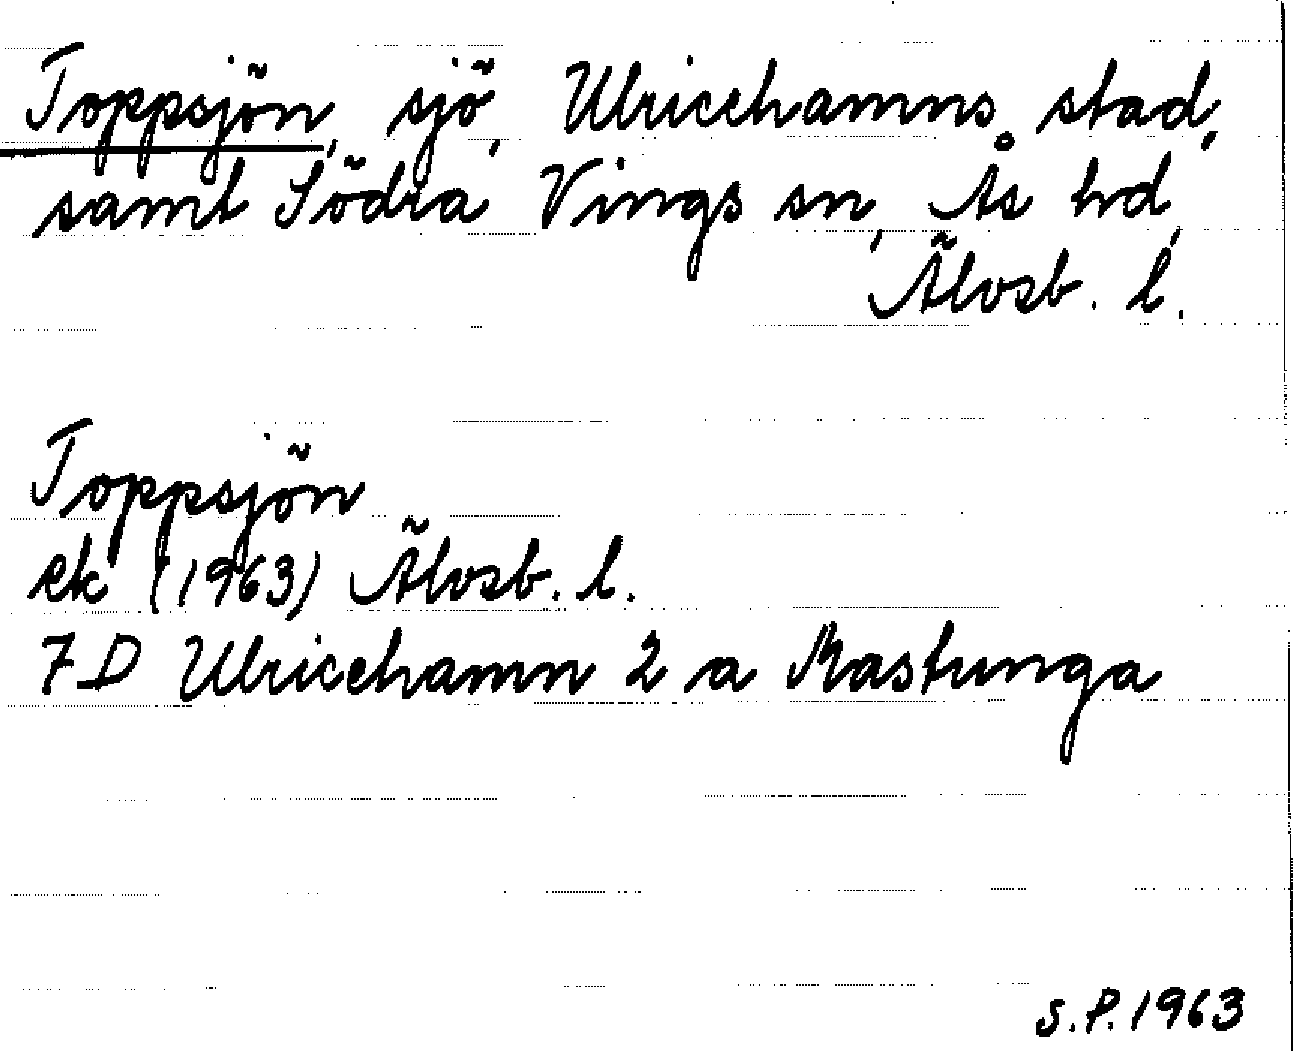 Toppsjön, sjö, Ulricehamns stad,
samt Södra Vings sn, Ås hd,
Älvsb. l.
Toppsjön
ek (1963) Älvsb. l.
7D Ulricehamn 2 a Mastunga
S.P. 1963